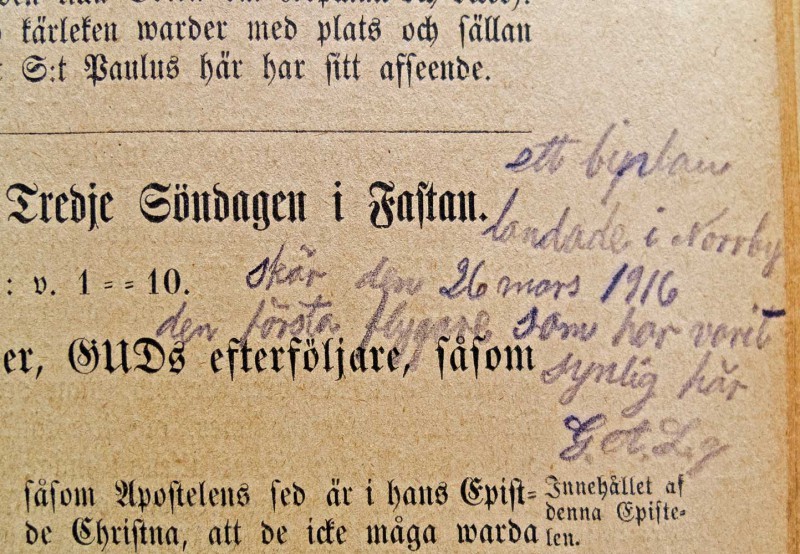 kärleken warder med plats och sällan
S:t Paulus här har sitt afseende.
ett biplan
Tredje Söndagen i Fastan.
landade i Norrby
: v. 1==10.
skär den 26 mars 1916
den första flygare som har varit
er, GUDs efterföljare, såsom
synlig här
G.A.Lg
såsom Apostelens sed är i hans Epist=
Innehållet af
denna Episte-
de Christna, att de icke måga warda
len.